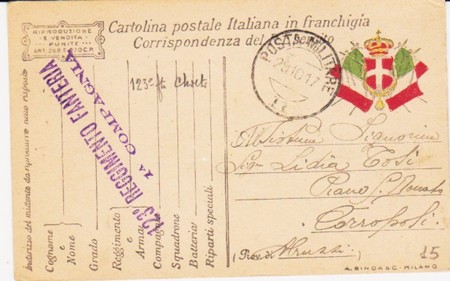 RIPRODUZIONE
E VENDITA
PUNITE
ART. 268 E 270 C.P.
Cartolina postale Italiana in franchigia
Corrispondenza del
POSTA MILITARE
29.10.17
123° REGGIMENTO FANTERIA
1ª COMPAGNIA
Indirizzo del mittente da riprodurre nelle risposte
Cognome
e
Nome
Grado
Reggimento
e
Arma
Compag
Squadrone
Batteria
Riparti speciali
123° ft
Signorine
Lidia Tosi
Piano S. Donato
Corropoli
(Prov. di Abruzzi)
25
A. SINDASC-MILANO